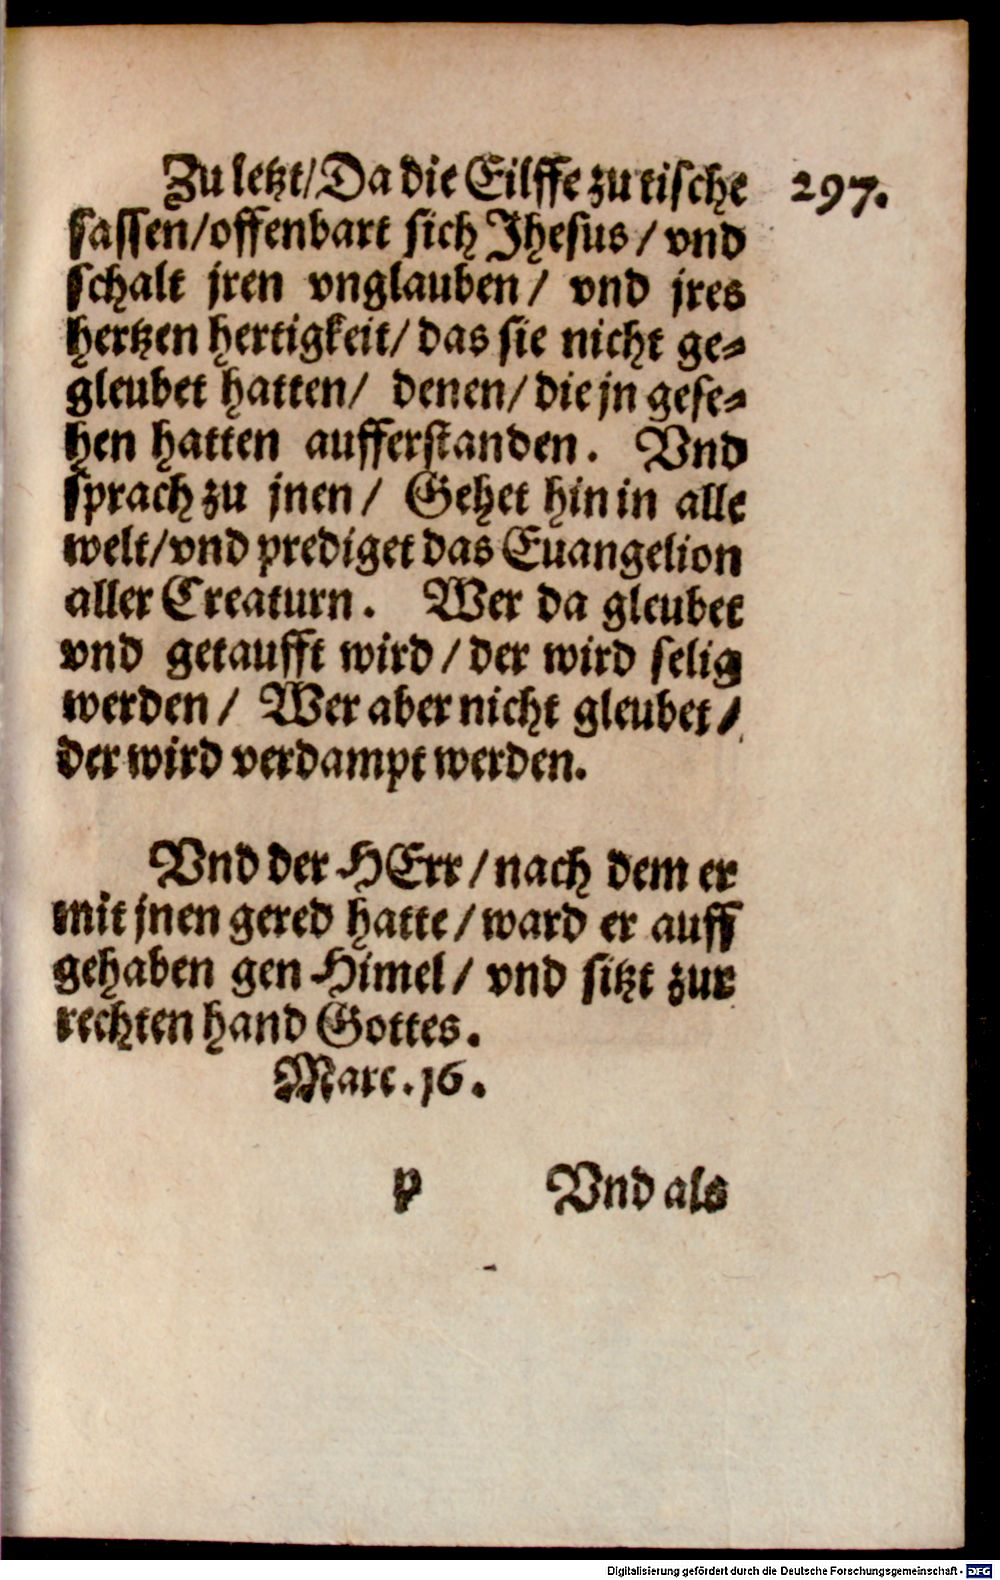 Zu letzt/ Da die Eilffe zu tische 297.
sassen/ offenbart sich Jhesus/ vnd
schalt jren vnglauben/ vnd jres
hertzen hertigkeit/ das sie nicht ge⸗
gleubet hatten/ denen/ die jn gese⸗
hen hatten aufferstanden. Vnd
sprach zu jnen/ Gehet hin in alle
welt/ vnd prediget das Euangelion
aller Creaturn. Wer da gleubet
vnd getaufft wird/ der wird selig
werden/ Wer aber nicht gleubet/
der wird verdampt werden.
Vnd der HErr/ nach dem er
mit jnen gered hatte/ ward er auff
gehaben gen Himel/ vnd sitzt zur
rechten hand Gottes.
Marc. 16.
p Vnd als
Digitalisierung gefördert durch die Deutsche Forschungsgemeinschaft - DFG